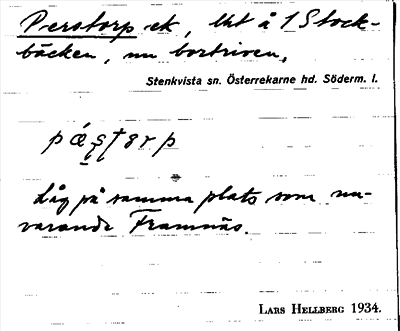 Perstorp ek, lht å 1 Stock-
bäcken, nu bortriven.
Stenkvista sn. Österrekarne hd. Söderm. l.
Låg på samma plats som nu-
varande Framnäs.
LARS HELLBERG 1934.